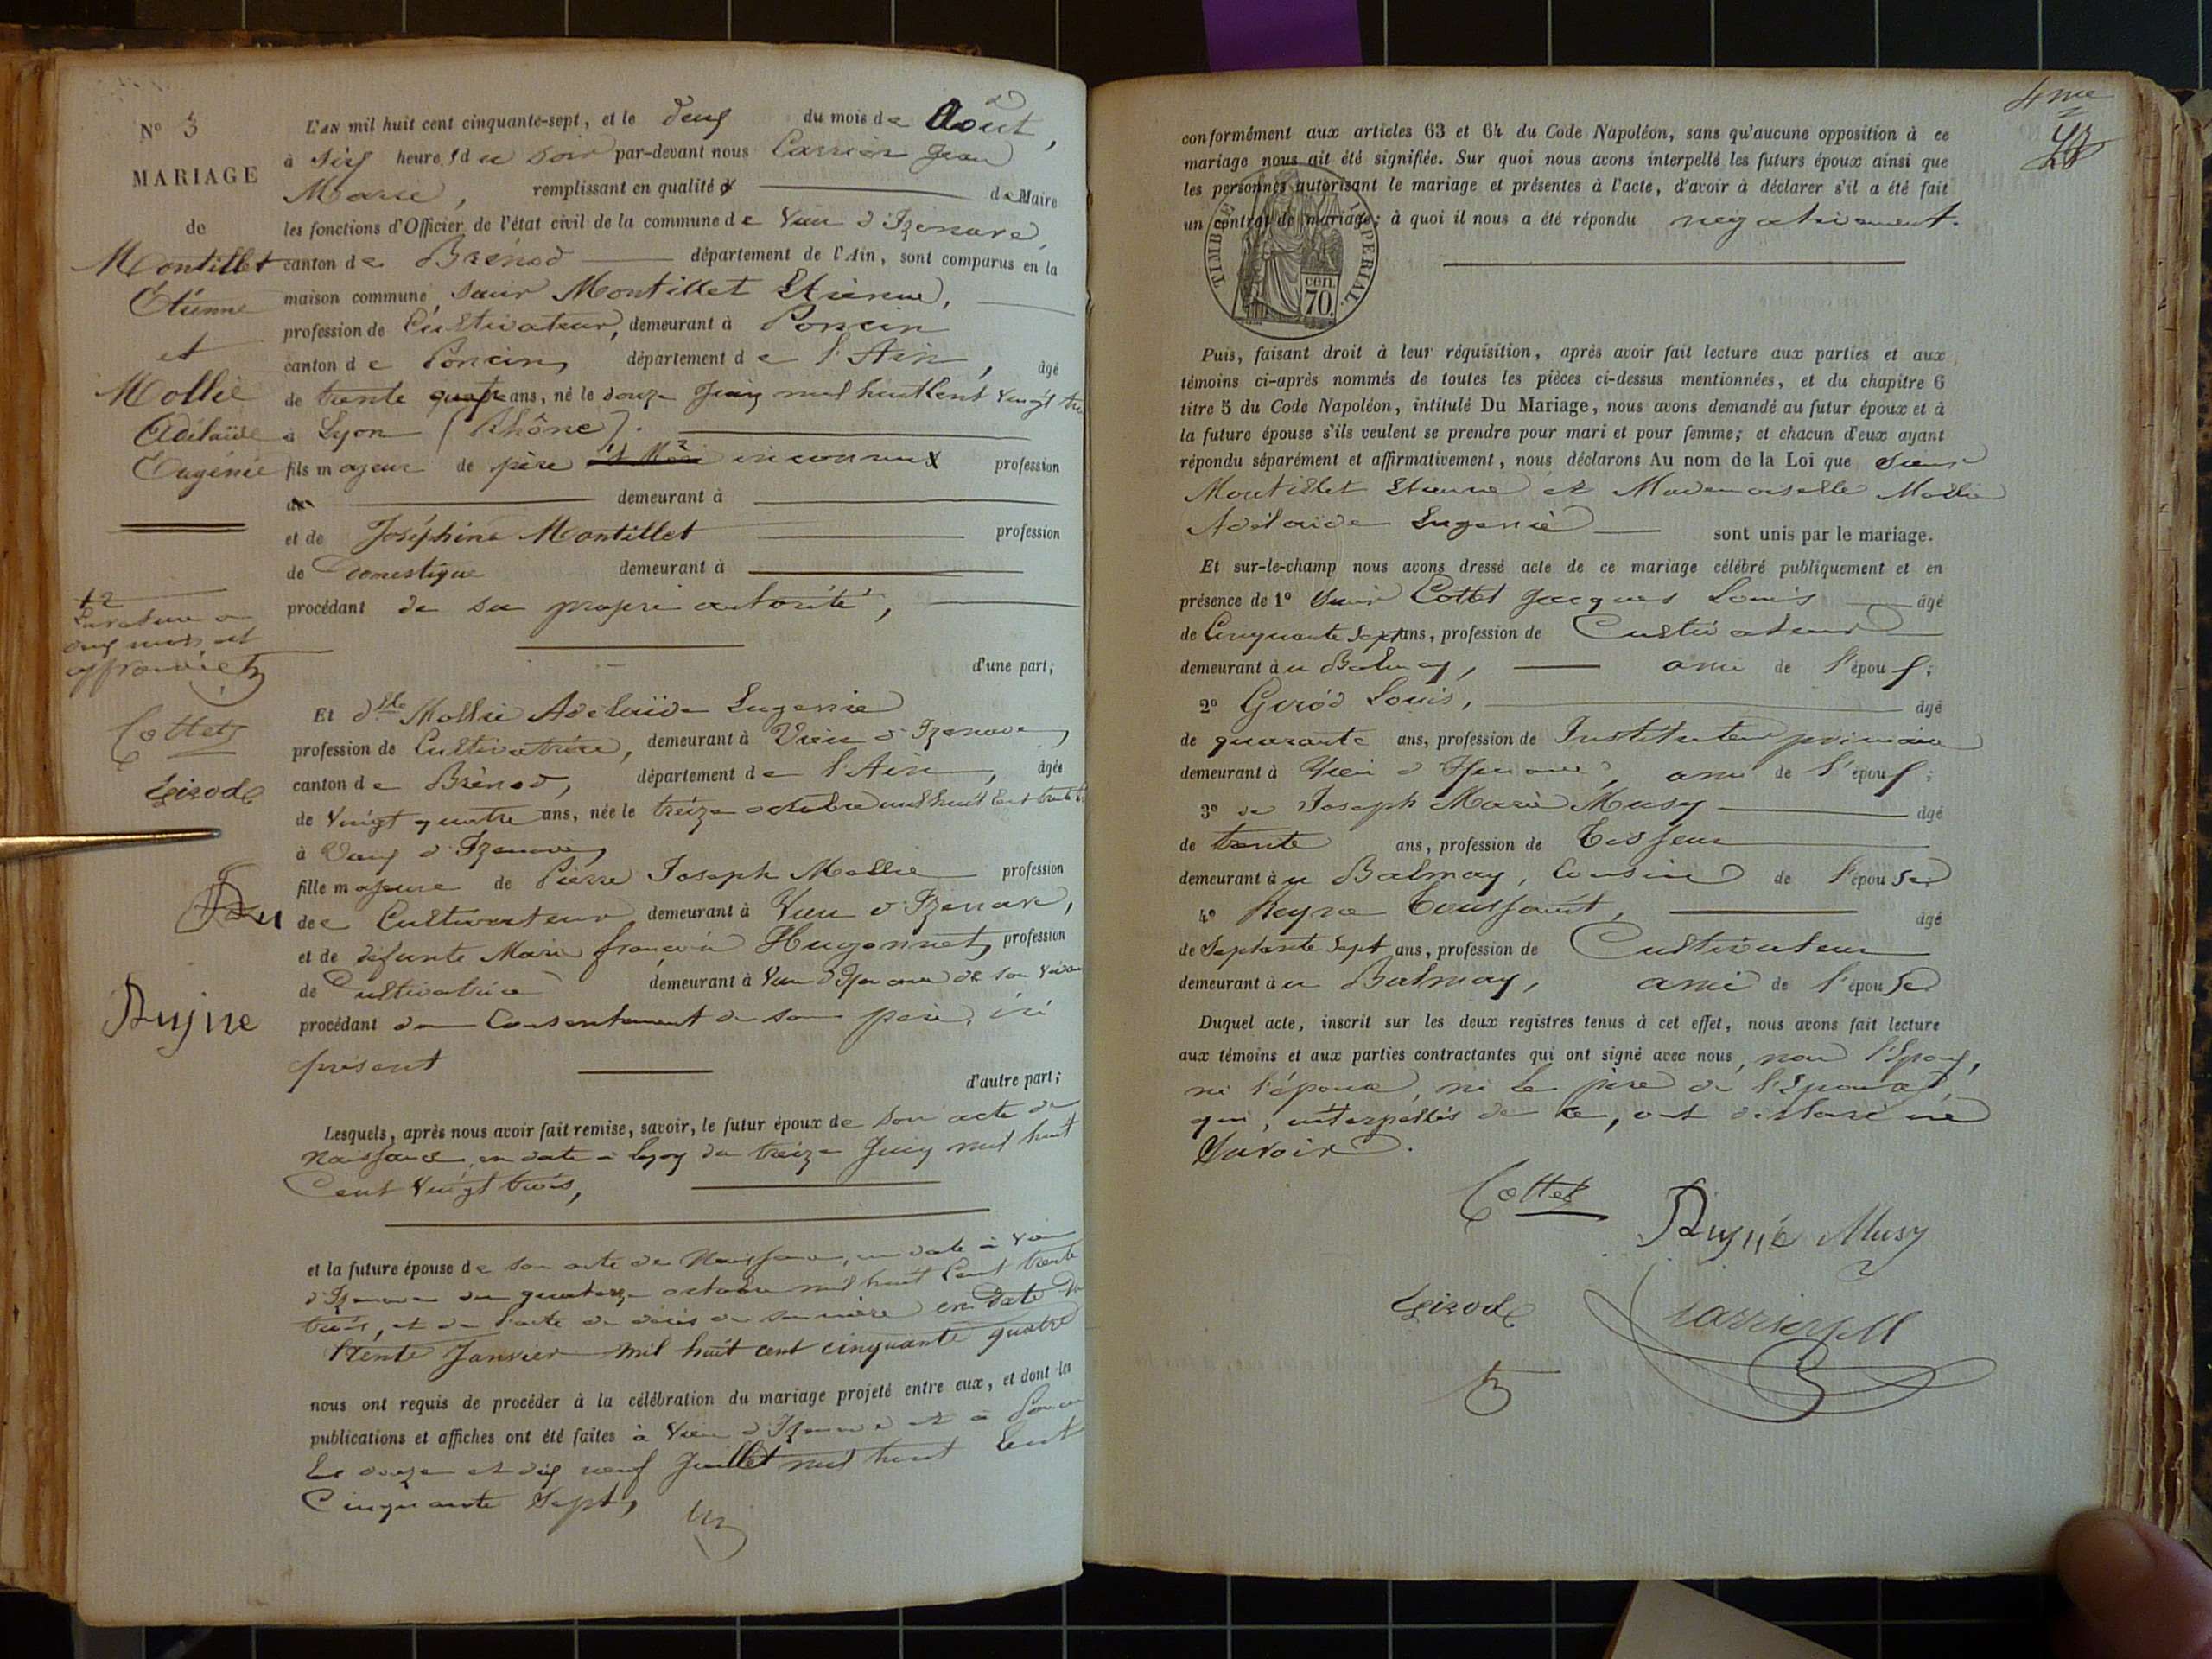 N° 3
MARIAGE
de
Montillet
Étienne
et
Mollie
Adélaïde
Eugénie
mots
Cottet
Girod
Reyne
L'AN mil huit cent cinquante-sept, et le deux du mois de Août,
à six heures du soir par-devant nous Carrier Jean
Marie, remplissant en qualité de Maire
les fonctions d'Officier de l'état civil de la commune de Vieu d'Izenave,
canton de Brénod département de l'Ain, sont comparus en la
maison commune, Sieur Montillet Etienne,
profession de Cultivateur, demeurant à Poncin
canton de Poncin, département de l'Ain, âgé
de trente quatre ans, né le douze Juin mil huit Cent vingt
à Lyon (Rhône).
fils majeur de père inconnu profession
demeurant à
et de Joséphine Montillet profession
de Domestique demeurant à
procédant de sa propre autorité,
d'une part;
Et dlle Mollie Adelaïde Eugenie
profession de Cultivatrice, demeurant à Vieu d'Izenave,
canton de Brénod, département de l'Ain, âgée
de vingt quatre ans, née le treize octobre mil huit Cent
à Vieu d'Izenave,
fille majeure de Pierre Joseph Mollie profession
de Cultivateur, demeurant à Vieu d'Izenave,
et de défunte Marie françoise Hugonnet, profession
de Cultivatrice demeurant à Vieu d'Izenave de son vivant
procédant du Consentement de son père, ici
présent
d'autre part;
Lesquels, après nous avoir fait remise, savoir, le futur époux de son acte de
Naissance, en date à Lyon du treize Juin mil huit
Cent vingt trois,
et la future épouse de son acte de Naissance, en date à Vieu
d'Izenave du quatorze octobre mil huit Cent trente
trois, et de l'acte de décès de sa mère en date du
trente Janvier mil huit cent cinquante quatre
nous ont requis de procéder à la célébration du mariage projeté entre eux, et dont les
publications et affiches ont été faites à Vieu d'Izenave et à Poncin
les douze et dix neuf Juillet mil huit Cent
Cinquante Sept,
4me
conformément aux articles 63 et 64 du Code Napoléon, sans qu'aucune opposition à ce
mariage nous ait été signifiée. Sur quoi nous avons interpellé les futurs époux ainsi que
les personnes autorisant le mariage et présentes à l'acte, d'avoir à déclarer s'il a été fait
un contrat de mariage; à quoi il nous a été répondu négativement.
TIMBRE IMPERIAL.
cen.
70.
Puis, faisant droit à leur réquisition, après avoir fait lecture aux parties et aux
témoins ci-après nommés de toutes les pièces ci-dessus mentionnées, et du chapitre 6
titre 5 du Code Napoléon, intitulé Du Mariage, nous avons demandé au futur époux et à
la future épouse s'ils veulent se prendre pour mari et pour femme; et chacun d'eux ayant
répondu séparément et affirmativement, nous déclarons Au nom de la Loi que Sieur
Montillet Etienne et Mademoiselle Mollie
Adélaïde Eugenie sont unis par le mariage.
Et sur-le-champ nous avons dressé acte de ce mariage célébré publiquement et en
présence de 1° Sieur Cottet Jacques Louis âgé
de Cinquante Sept ans, profession de Cultivateur
demeurant à Balmay, ami de l'époux;
2° Girod Louis, âgé
de quarante ans, profession de Instituteur primaire
demeurant à Vieu d'Izenave, ami de l'époux;
3° de Joseph Marie Musy âgé
de trente ans, profession de Tisseur
demeurant à Balmay, Cousin de l'épouse
4° Reyne Toussaint, âgé
de Septante Sept ans, profession de Cultivateur
demeurant à Balmay, ami de l'épouse
Duquel acte, inscrit sur les deux registres tenus à cet effet, nous avons fait lecture
aux témoins et aux parties contractantes qui ont signé avec nous, non l'Epoux,
ni l'épouse, ni le père de l'Epouse,
qui, interpellés de ce, ont déclaré ne
Savoir.
Cottet
Reyne Musy
Girod
Carrier JM